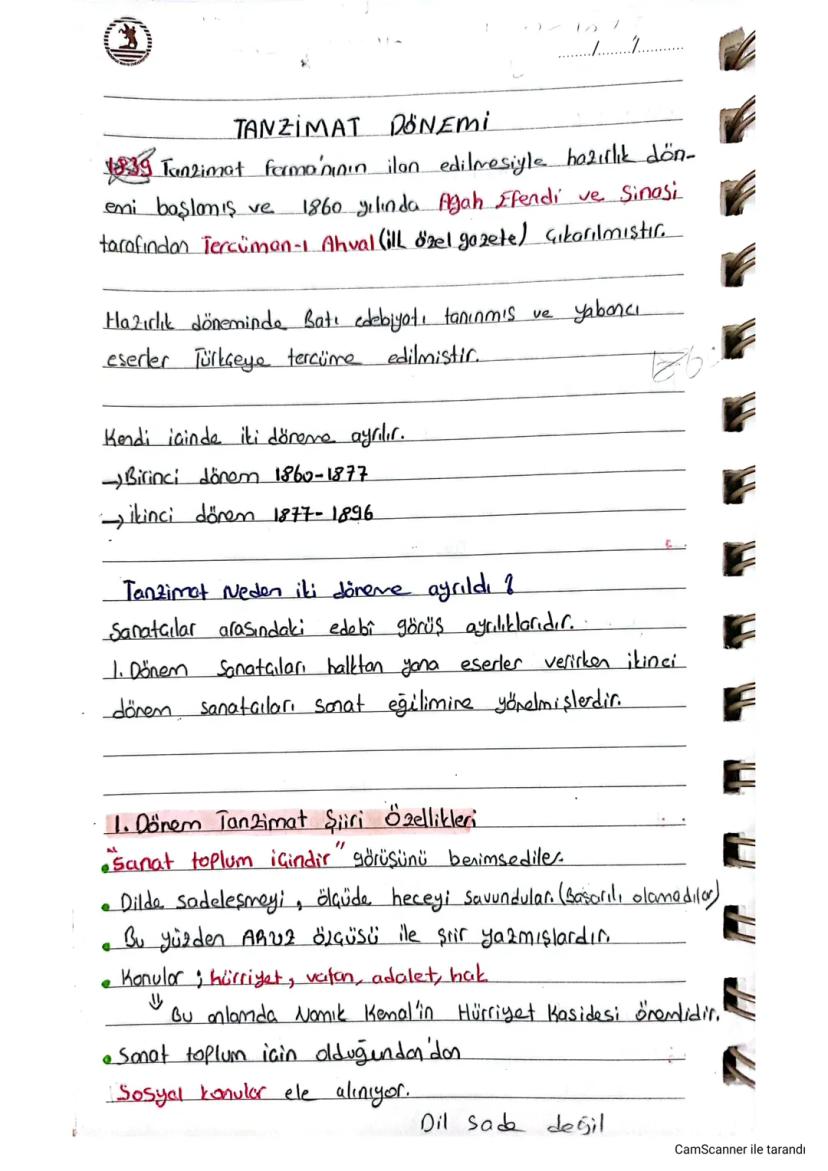 TANZİMAT DÖNEMİ
1839 Tanzimat Ferma'nının ilan edilmesiyle hazırlık dön-
emi başlamış ve 1860 yılında Agah Efendi ve Şinasi
tarafından Tercüman-ı Ahval (ilk özel gazete) çıkarılmıştır.
Hazırlık döneminde Batı edebiyatı tanınmış ve yabancı
eserler Türkçeye tercüme edilmiştir.
Kendi içinde iki döneme ayrılır.
→Birinci dönem 1860-1877
→ikinci dönem 1877-1896
Tanzimat Neden iki döneme ayrıldı ?
Sanatçılar arasındaki edebî görüş ayrılıklarıdır.
1. Dönem Sanatçıları halktan yana eserler verirken ikinci
dönem sanatçıları sanat eğilimine yönelmişlerdir.
1. Dönem Tanzimat Şiiri Özellikleri
• "Sanat toplum içindir" görüşünü benimsediler.
• Dilde sadeleşmeyi, ölçüde heceyi savundular. (Başarılı olamadılar)
• Bu yüzden ARUZ ÖLÇÜSÜ ile şiir yazmışlardır.
• Konular ; hürriyet, vatan, adalet, hak
⇓ Bu anlamda Namık Kemal'in Hürriyet Kasidesi önemlidir.
• Sanat toplum için olduğundan'dan
Sosyal konular ele alınıyor.
Dil sade değil
CamScanner ile tarandı